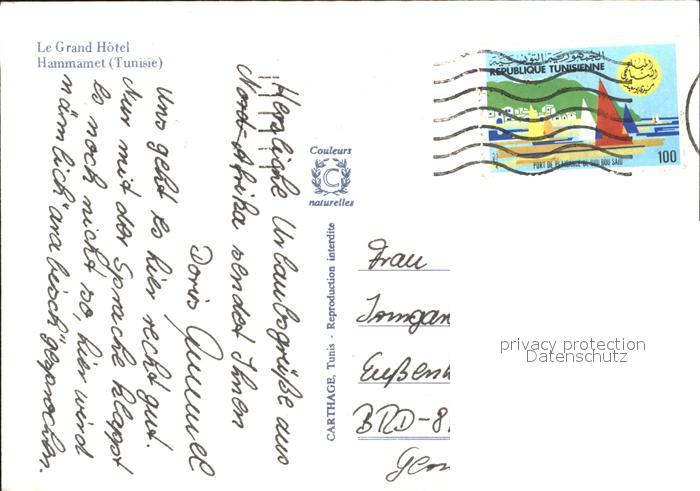 Le Grand Hôtel
Hammamet (Tunisie)
Herzliche Urlaubsgrüße aus
Nord-Afrika sendet Ihnen
Doris
Uns geht es hier recht gut.
Nur mit der Sprache klappt
es noch nicht so, hier wird
nämlich "arabisch" gesprochen.
Couleurs
C
naturelles
CARTHAGE, Tunis - Reproduction interdite
الجمهورية التونسية
REPUBLIQUE TUNISIENNE
PORT DE PLAISANCE DE SIDI BOU SAID
100
Frau
BRD-8
privacy protection
Datenschutz